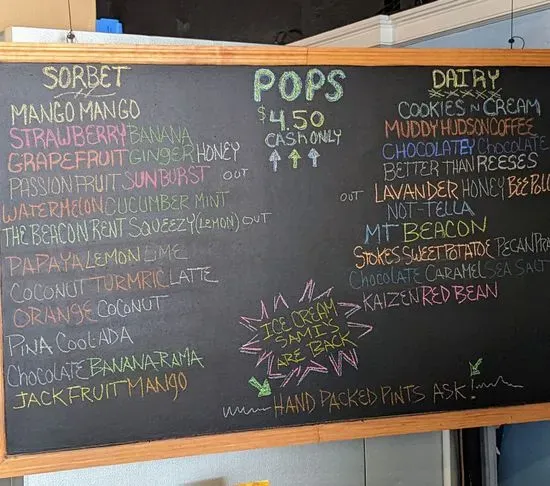 SORBET
MANGO MANGO
STRAWBERRY BANANA
GRAPEFRUIT GINGER HONEY
PASSION FRUIT SUNBURST OUT
WATERMELON CUCUMBER MINT
THE BEACON RENT SQUEEZY (LEMON) OUT
PAPAYA LEMON LIME
COCONUT TURMRIC LATTE
ORANGE COCONUT
PINA COOLADA
CHOCOLATE BANANA-RAMA
JACKFRUIT MANGO
POPS
$4.50
CASH ONLY
ICE CREAM
SAMI'S
ARE BACK
HAND PACKED PINTS ASK!
DAIRY
COOKIES N CREAM
MUDDY HUDSON COFFEE
CHOCOLATEY Chocolate
BETTER THAN REESES
OUT LAVANDER HONEY BEE POLL
NOT-TELLA
MT BEACON
STOKES SWEET POTATOE PECAN PRA
Chocolate CARAMEL SEA SALT
KAIZEN RED BEAN